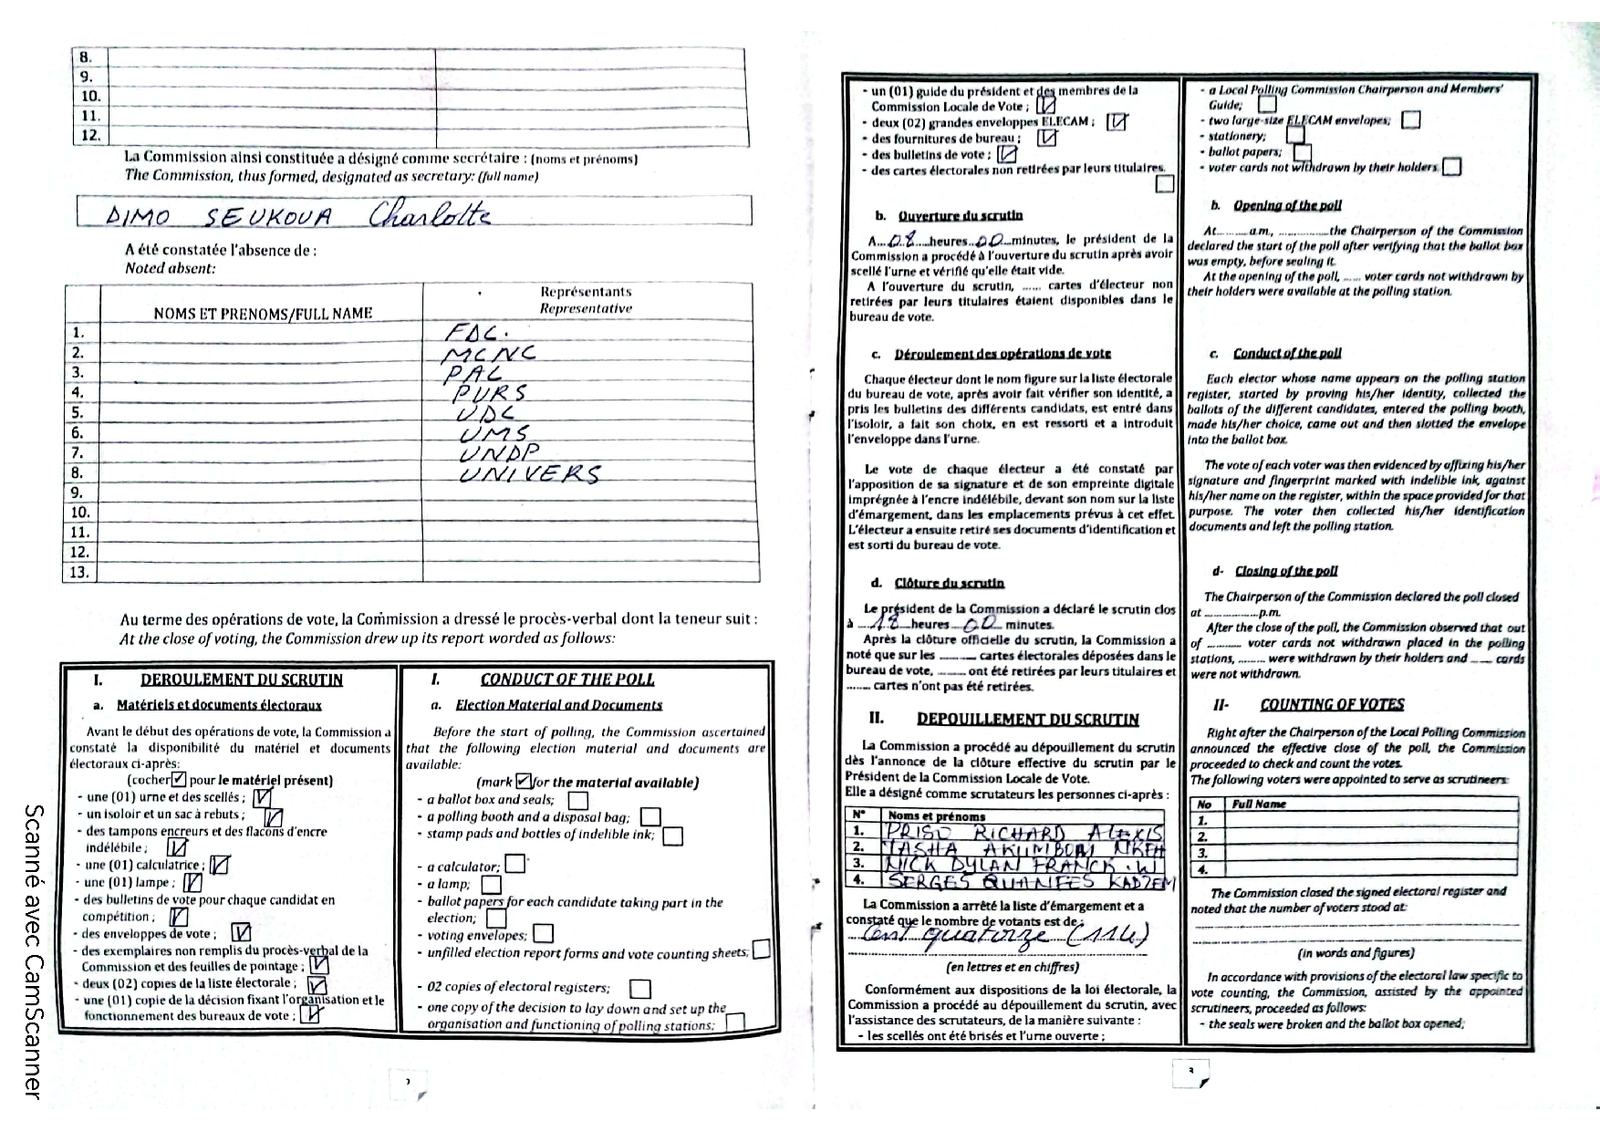 8.
9.
10.
11.
12.
La Commission ainsi constituée a désigné comme secrétaire : (noms et prénoms)
The Commission, thus formed, designated as secretary: (full name)
DIMO SEUKOUA Charlotte
A été constatée l'absence de :
Noted absent:
NOMS ET PRENOMS/FULL NAME
Représentants
Representative
1. FDC.
2. MCNC
3. PAL
4. PURS
5. UDC
6. UMS
7. UNDP
8. UNIVERS
9.
10.
11.
12.
13.
Au terme des opérations de vote, la Commission a dressé le procès-verbal dont la teneur suit :
At the close of voting, the Commission drew up its report worded as follows:
I. DEROULEMENT DU SCRUTIN
a. Matériels et documents électoraux
Avant le début des opérations de vote, la Commission a
constaté la disponibilité du matériel et documents
électoraux ci-après:
(cocher pour le matériel présent)
- une (01) urne et des scellés ;
- un isoloir et un sac à rebuts ;
- des tampons encreurs et des flacons d'encre
indélébile ;
- une (01) calculatrice ;
- une (01) lampe ;
- des bulletins de vote pour chaque candidat en
compétition ;
- des enveloppes de vote ;
- des exemplaires non remplis du procès-verbal de la
Commission et des feuilles de pointage ;
- deux (02) copies de la liste électorale ;
- une (01) copie de la décision fixant l'organisation et le
fonctionnement des bureaux de vote ;
I. CONDUCT OF THE POLL
a. Election Material and Documents
Before the start of polling, the Commission ascertained
that the following election material and documents are
available:
(mark for the material available)
- a ballot box and seals;
- a polling booth and a disposal bag;
- stamp pads and bottles of indelible ink;
- a calculator;
- a lamp;
- ballot papers for each candidate taking part in the
election;
- voting envelopes;
- unfilled election report forms and vote counting sheets;
- 02 copies of electoral registers;
- one copy of the decision to lay down and set up the
organisation and functioning of polling stations;
Scanné avec CamScanner
- un (01) guide du président et des membres de la
Commission Locale de Vote ;
- deux (02) grandes enveloppes ELECAM ;
- des fournitures de bureau ;
- des bulletins de vote ;
- des cartes électorales non retirées par leurs titulaires.
b. Ouverture du scrutin
A...08...heures...00...minutes, le président de la
Commission a procédé à l'ouverture du scrutin après avoir
scellé l'urne et vérifié qu'elle était vide.
A l'ouverture du scrutin, ...... cartes d'électeur non
retirées par leurs titulaires étaient disponibles dans le
bureau de vote.
c. Déroulement des opérations de vote
Chaque électeur dont le nom figure sur la liste électorale
du bureau de vote, après avoir fait vérifier son identité, a
pris les bulletins des différents candidats, est entré dans
l'isoloir, a fait son choix, en est ressorti et a introduit
l'enveloppe dans l'urne.
Le vote de chaque électeur a été constaté par
l'apposition de sa signature et de son empreinte digitale
imprégnée à l'encre indélébile, devant son nom sur la liste
d'émargement, dans les emplacements prévus à cet effet.
L'électeur a ensuite retiré ses documents d'identification et
est sorti du bureau de vote.
d. Clôture du scrutin
Le président de la Commission a déclaré le scrutin clos
à ...18...heures...00... minutes.
Après la clôture officielle du scrutin, la Commission a
noté que sur les .......... cartes électorales déposées dans le
bureau de vote, ........ ont été retirées par leurs titulaires et
........ cartes n'ont pas été retirées.
II. DEPOUILLEMENT DU SCRUTIN
La Commission a procédé au dépouillement du scrutin
dès l'annonce de la clôture effective du scrutin par le
Président de la Commission Locale de Vote.
Elle a désigné comme scrutateurs les personnes ci-après :
N° Noms et prénoms
1. PRISO RICHARD ALEXIS
2. TASHA
3. NICK DYLAN FRANCK .W
4. SERGES KADJEM
La Commission a arrêté la liste d'émargement et a
constaté que le nombre de votants est de :
Cent quatorze (114)
(en lettres et en chiffres)
Conformément aux dispositions de la loi électorale, la
Commission a procédé au dépouillement du scrutin, avec
l'assistance des scrutateurs, de la manière suivante :
- les scellés ont été brisés et l'urne ouverte ;
- a Local Polling Commission Chairperson and Members'
Guide;
- two large-size ELECAM envelopes;
- stationery;
- ballot papers;
- voter cards not withdrawn by their holders
b. Opening of the poll
At.........a.m., ...............the Chairperson of the Commission
declared the start of the poll after verifying that the ballot box
was empty, before sealing it.
At the opening of the poll, ...... voter cards not withdrawn by
their holders were available at the polling station.
c. Conduct of the poll
Each elector whose name appears on the polling station
register, started by proving his/her identity, collected the
ballots of the different candidates, entered the polling booth,
made his/her choice, came out and then slotted the envelope
into the ballot box.
The vote of each voter was then evidenced by affixing his/her
signature and fingerprint marked with indelible ink, against
his/her name on the register, within the space provided for that
purpose. The voter then collected his/her identification
documents and left the polling station.
d- Closing of the poll
The Chairperson of the Commission declared the poll closed
at ...................p.m.
After the close of the poll, the Commission observed that out
of .......... voter cards not withdrawn placed in the polling
stations, ......... were withdrawn by their holders and ....... cards
were not withdrawn.
II- COUNTING OF VOTES
Right after the Chairperson of the Local Polling Commission
announced the effective close of the poll, the Commission
proceeded to check and count the votes.
The following voters were appointed to serve as scrutineers:
No Full Name
1.
2.
3.
4.
The Commission closed the signed electoral register and
noted that the number of voters stood at:
(in words and figures)
In accordance with provisions of the electoral law specific to
vote counting, the Commission, assisted by the appointed
scrutineers, proceeded as follows:
- the seals were broken and the ballot box opened;
3